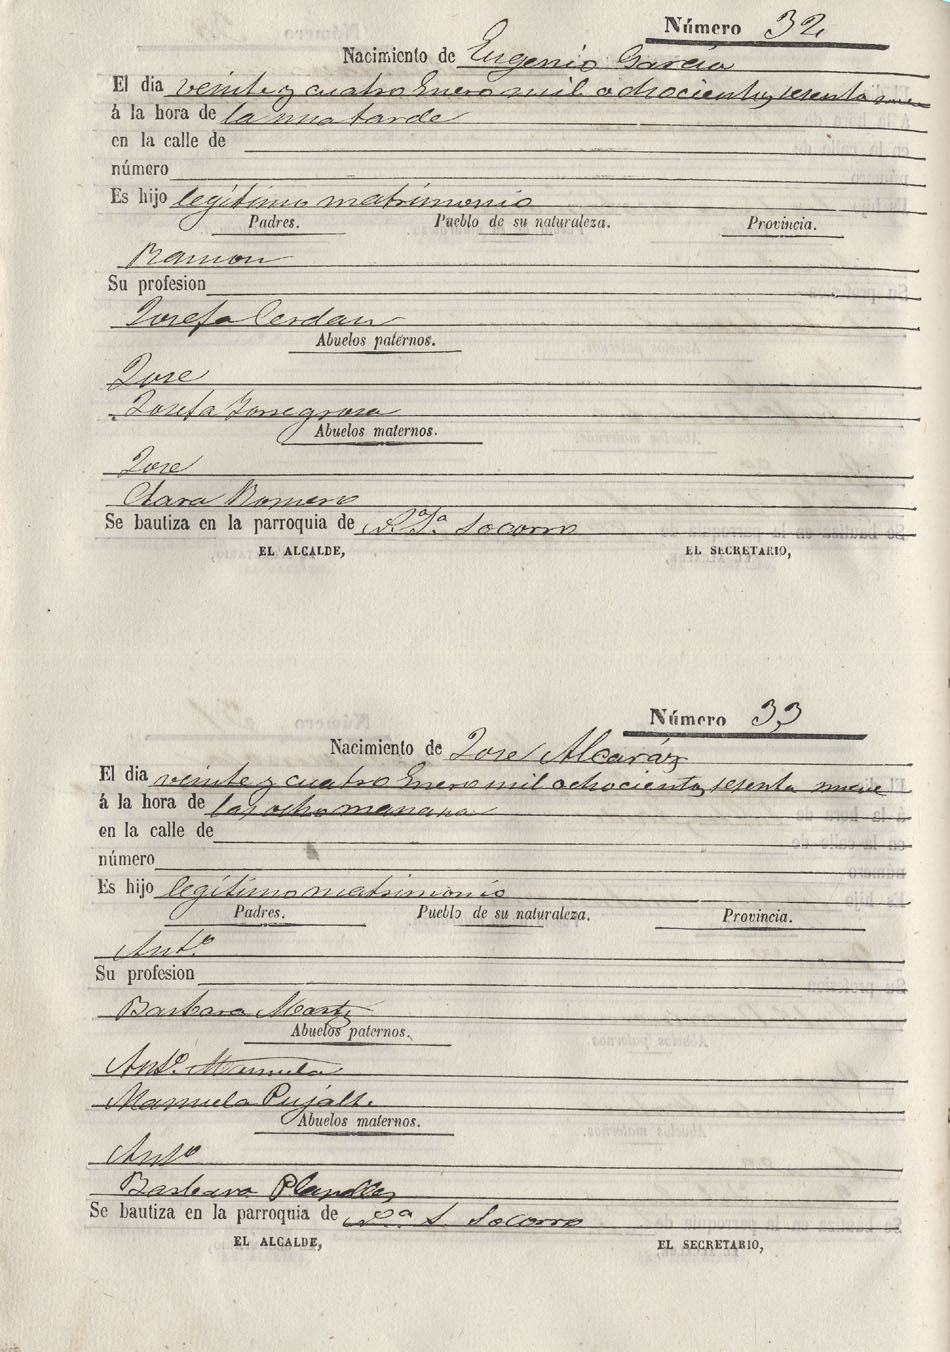 Número 32
Nacimiento de Eugenio García
El dia veinte y cuatro Enero mil ochocientos sesenta nueve
á la hora de la una tarde
en la calle de
número
Es hijo legítimo matrimonio
Padres. Pueblo de su naturaleza. Provincia.
Ramon
Su profesion
Josefa Cerdan
Abuelos paternos.
Jose
Josefa Torregrosa
Abuelos maternos.
Jose
Clara Romero
Se bautiza en la parroquia de Socorro
EL ALCALDE, EL SECRETARIO,
Número 33
Nacimiento de Jose Alcaráz
El dia veinte y cuatro Enero mil ochocientos sesenta nueve
á la hora de las ocho manana
en la calle de
número
Es hijo legítimo matrimonio
Padres. Pueblo de su naturaleza. Provincia.
Antº
Su profesion
Barbara Martz
Abuelos paternos.
Antº. Manuela
Manuela Pujalt.
Abuelos maternos.
Antº
Barbara Planelles
Se bautiza en la parroquia de Socorro
EL ALCALDE, EL SECRETARIO,